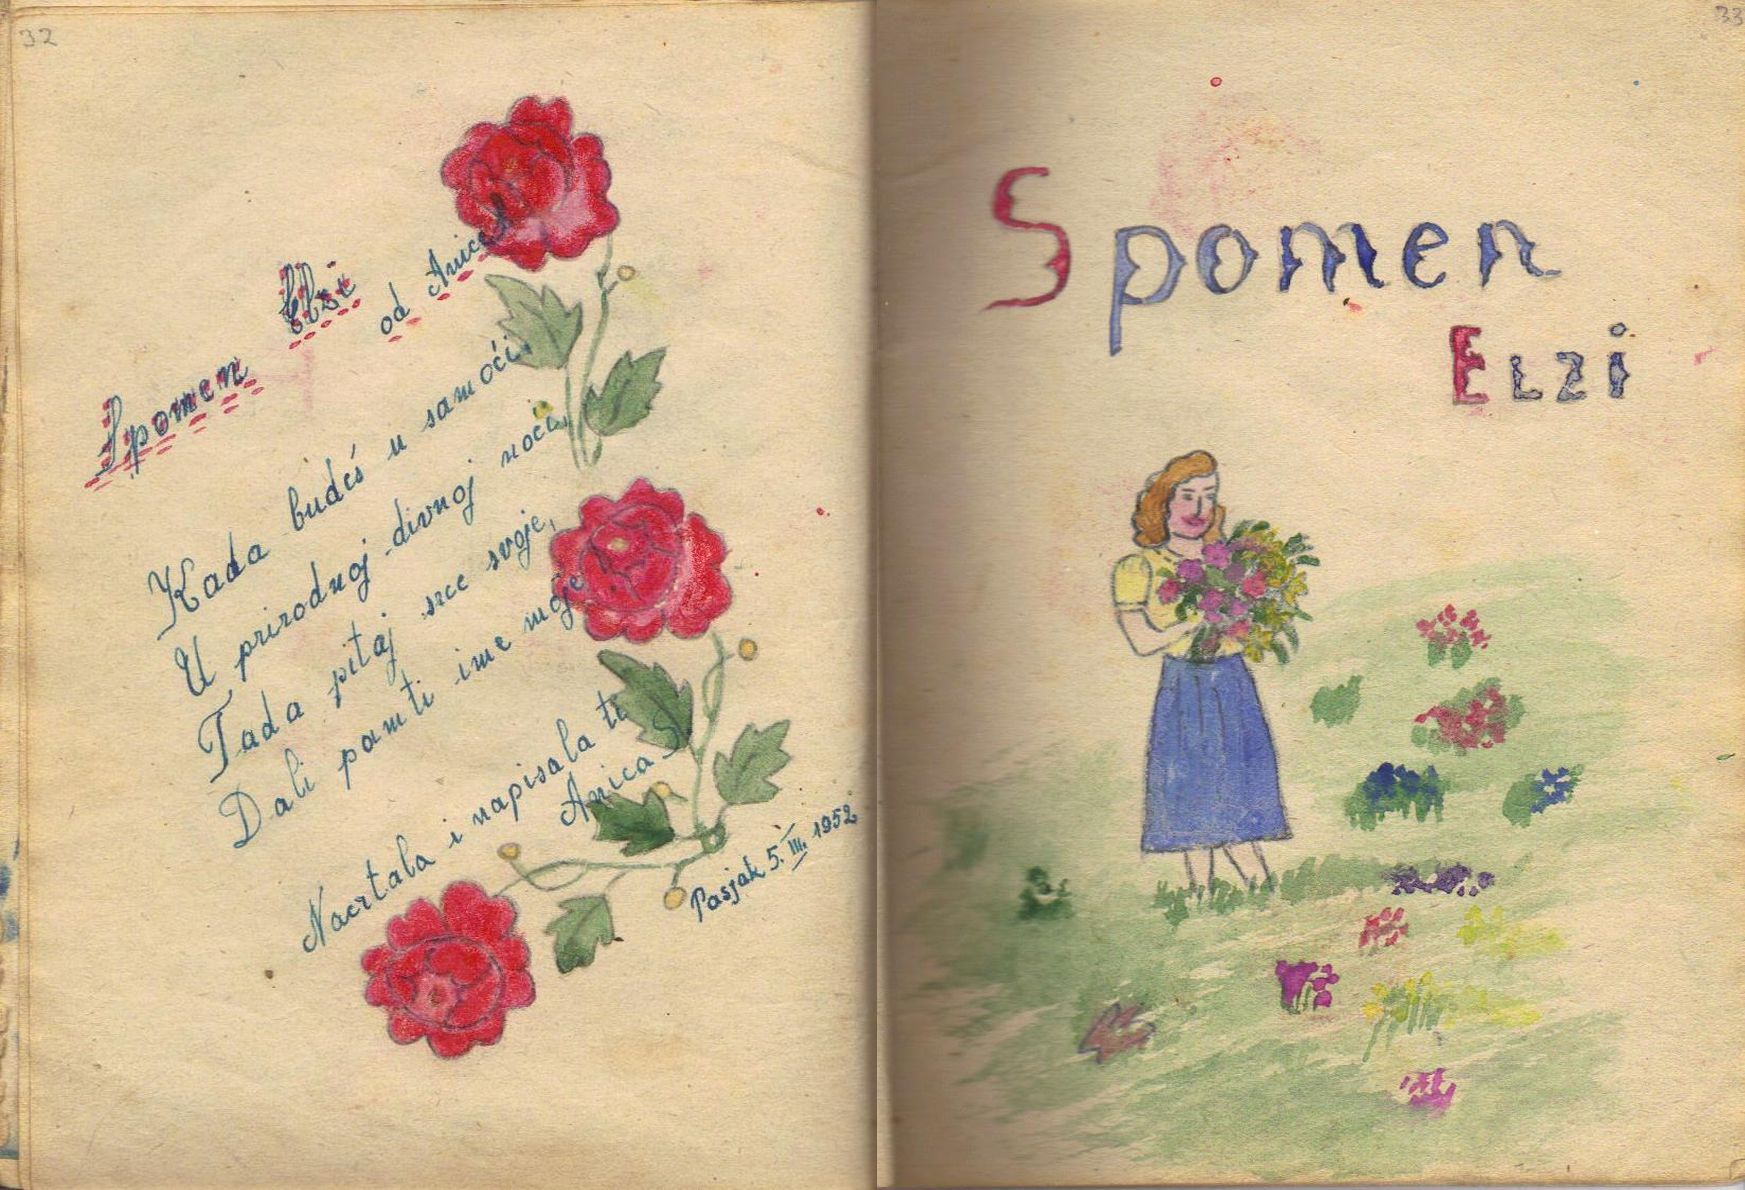 32
Spomen Elzi
od Anice
Kada budeš u samoći,
U prirodnoj divnoj noći,
Tada pitaj srce svoje,
Dali pamti ime moje
Nacrtala i napisala ti
Anica S
Pasjak 5. III. 1952
33
Spomen
Elzi